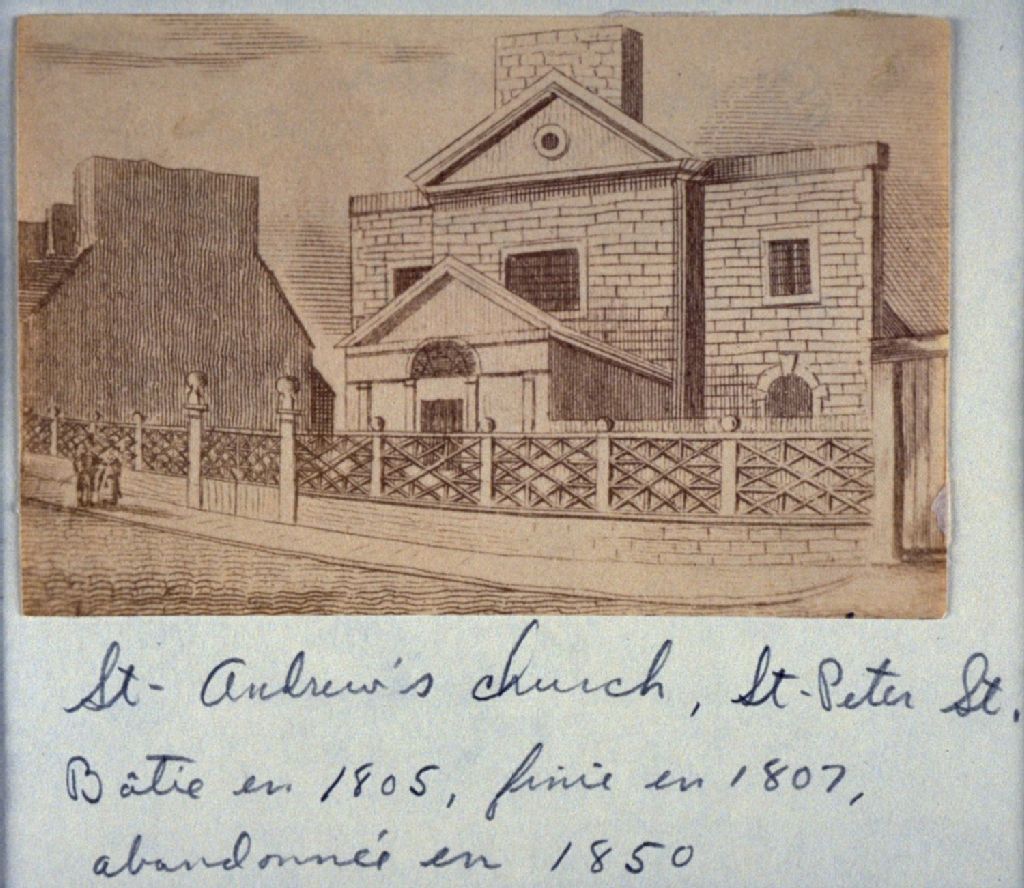 St-Andrew's church, St-Peter St.
Bâtie en 1805, finie en 1807,
abandonnée en 1850